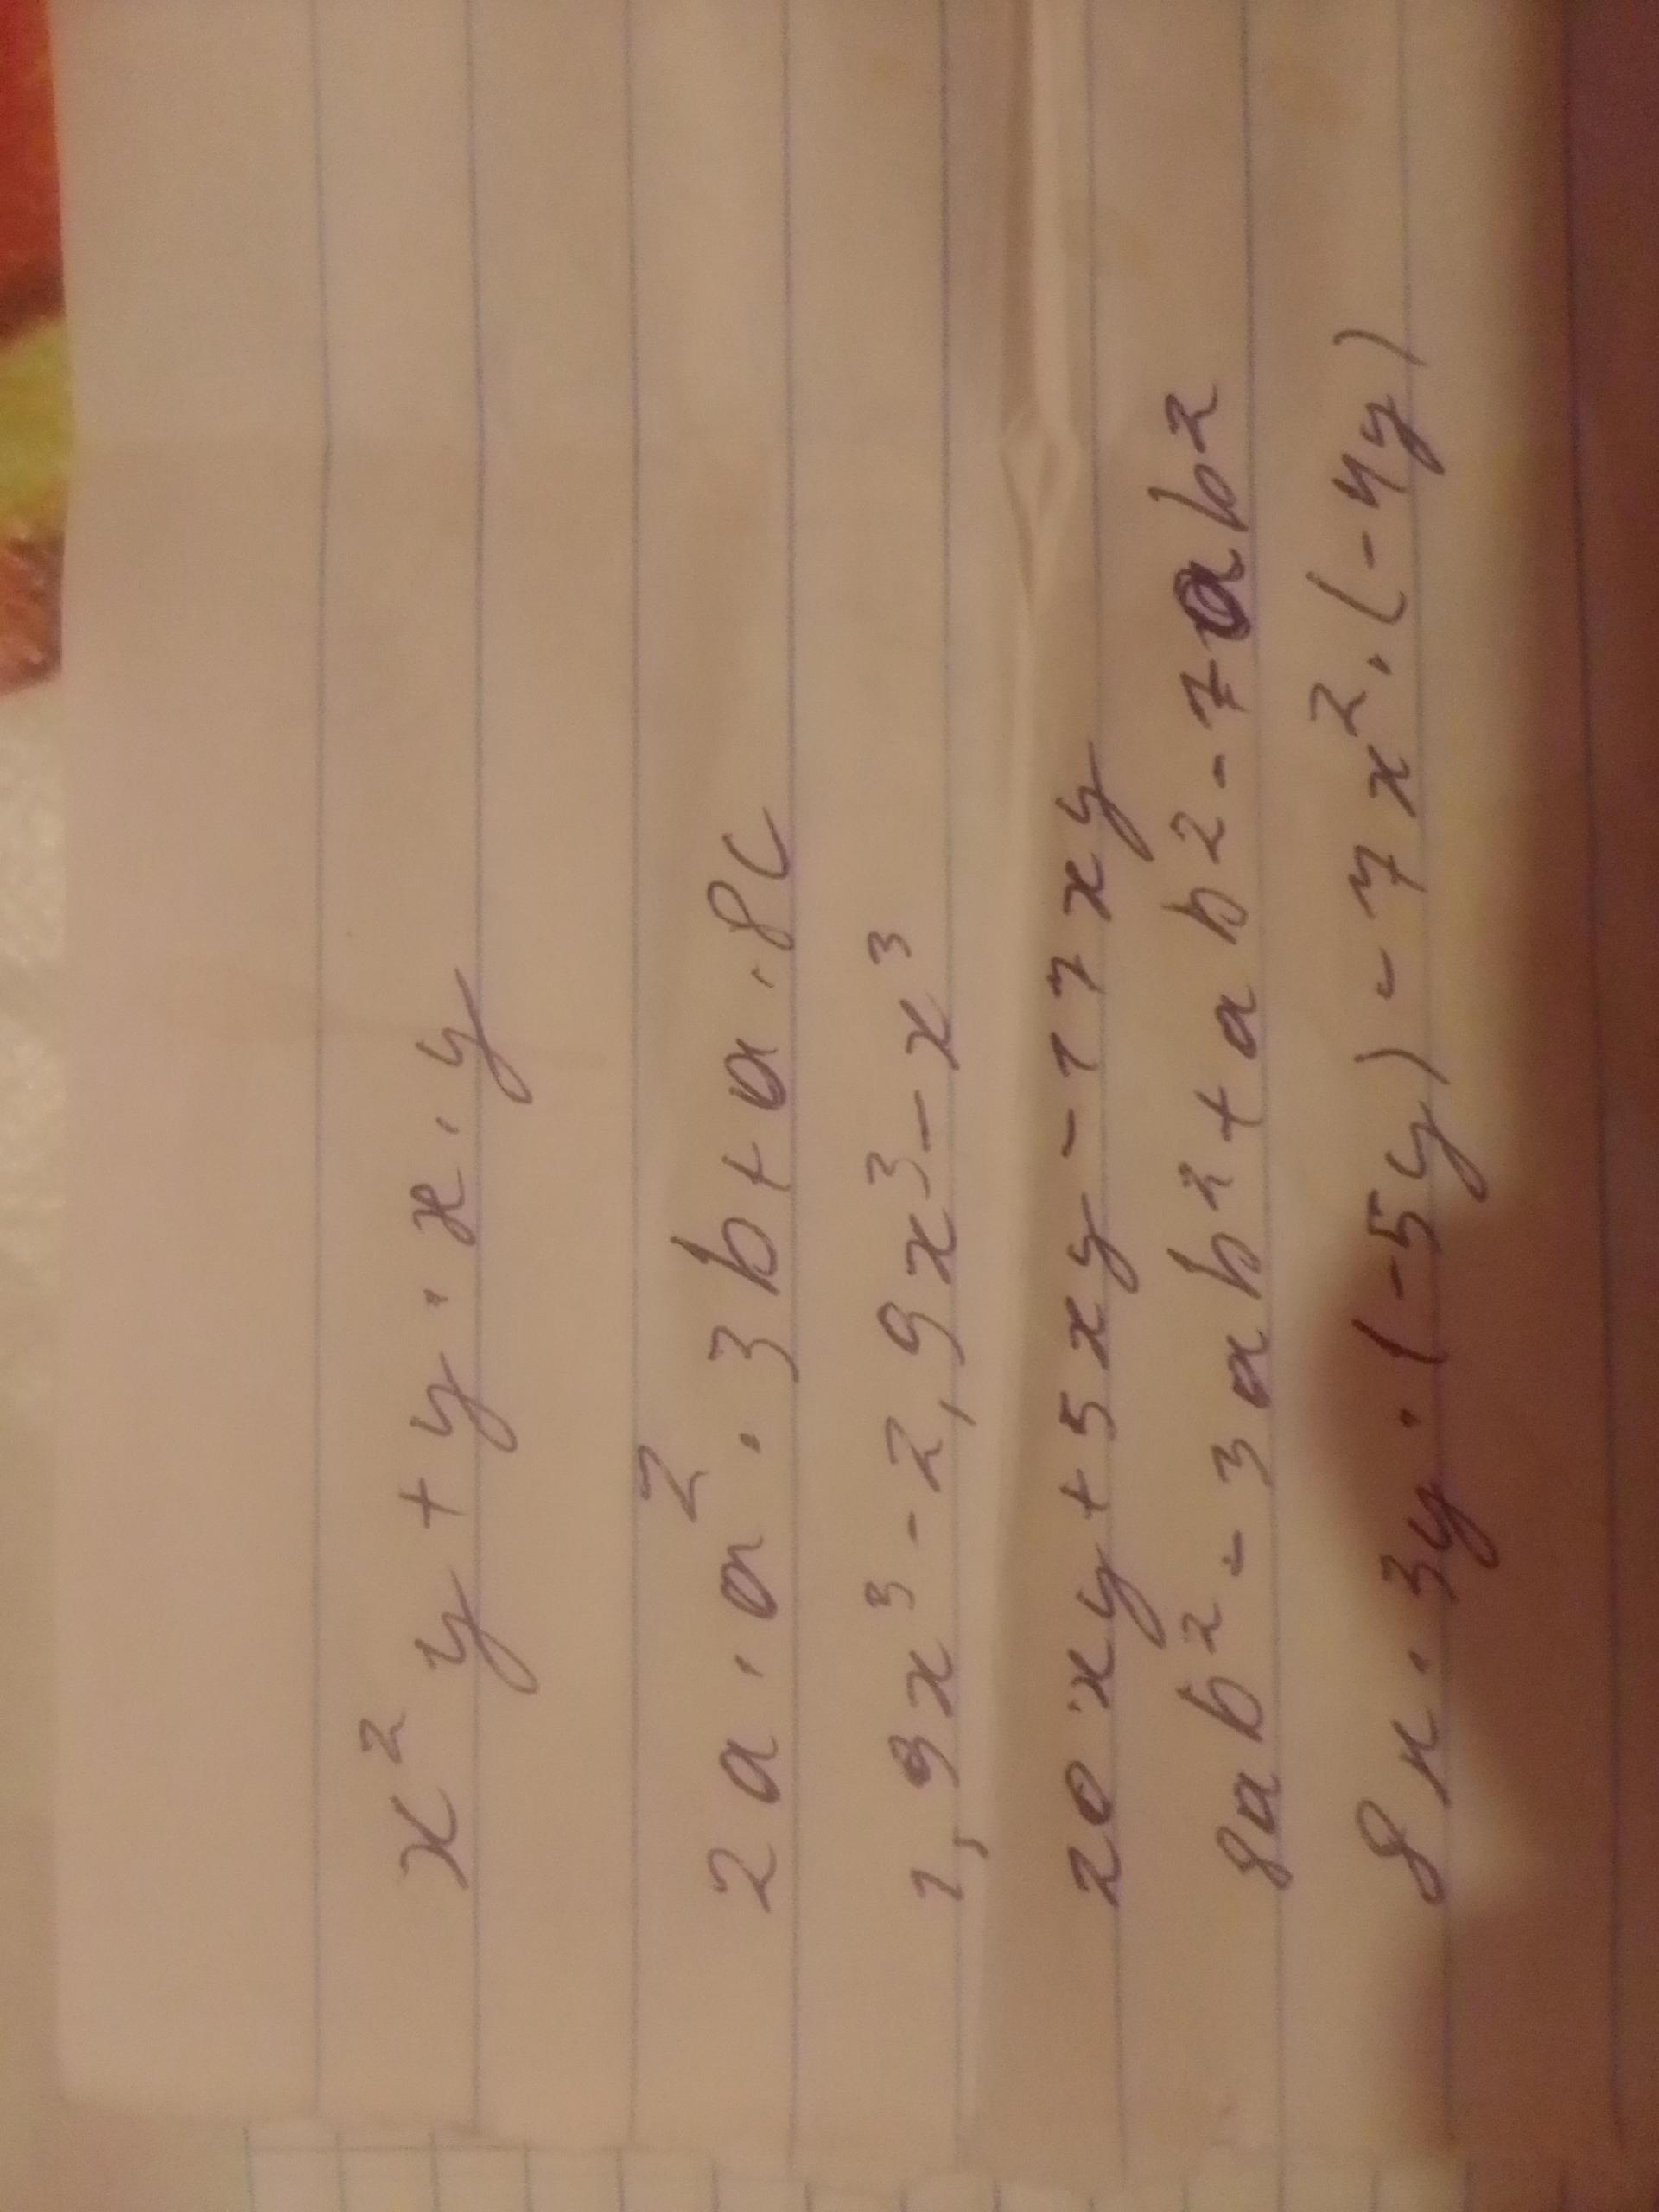 x² y + y · x · y
2a · a² · 3b + a · 8c
1,9x³ - 2,9x³ - x³
20xy + 5xy - 17xy
8ab² - 3ab² + ab² - 7ab²
8x · 3y · (-5y) - 7x² · (-4y)